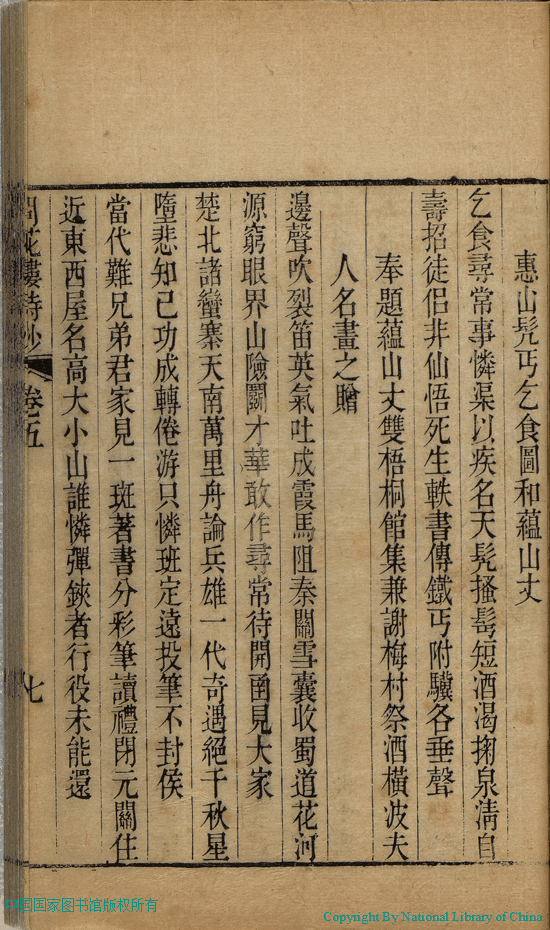 惠山髡丐乞食圖和蘊山丈
乞食尋常事憐渠以疾名天髡搔髩短酒渴掬泉淸自
壽招徒侶非仙悟死生軼書傳鐵丐附驥各垂聲
奉題蘊山丈雙梧桐館集兼謝梅村祭酒橫波夫
人名畫之贈
邊聲吹裂笛英氣吐成霞馬阻秦關雪囊收蜀道花河
源窮眼界山險鬭才華敢作尋常待開函見大家
楚北諸蠻寨天南萬里舟論兵雄一代奇遇絕千秋星
墮悲知己功成轉倦游只憐班定遠投筆不封侯
當代難兄弟君家見一斑著書分彩筆讀禮閉元關住
近東西屋名高大小山誰憐彈鋏者行役未能還
花樓詩鈔 卷五 七
中国国家图书馆版权所有
Copyright By National Library of China